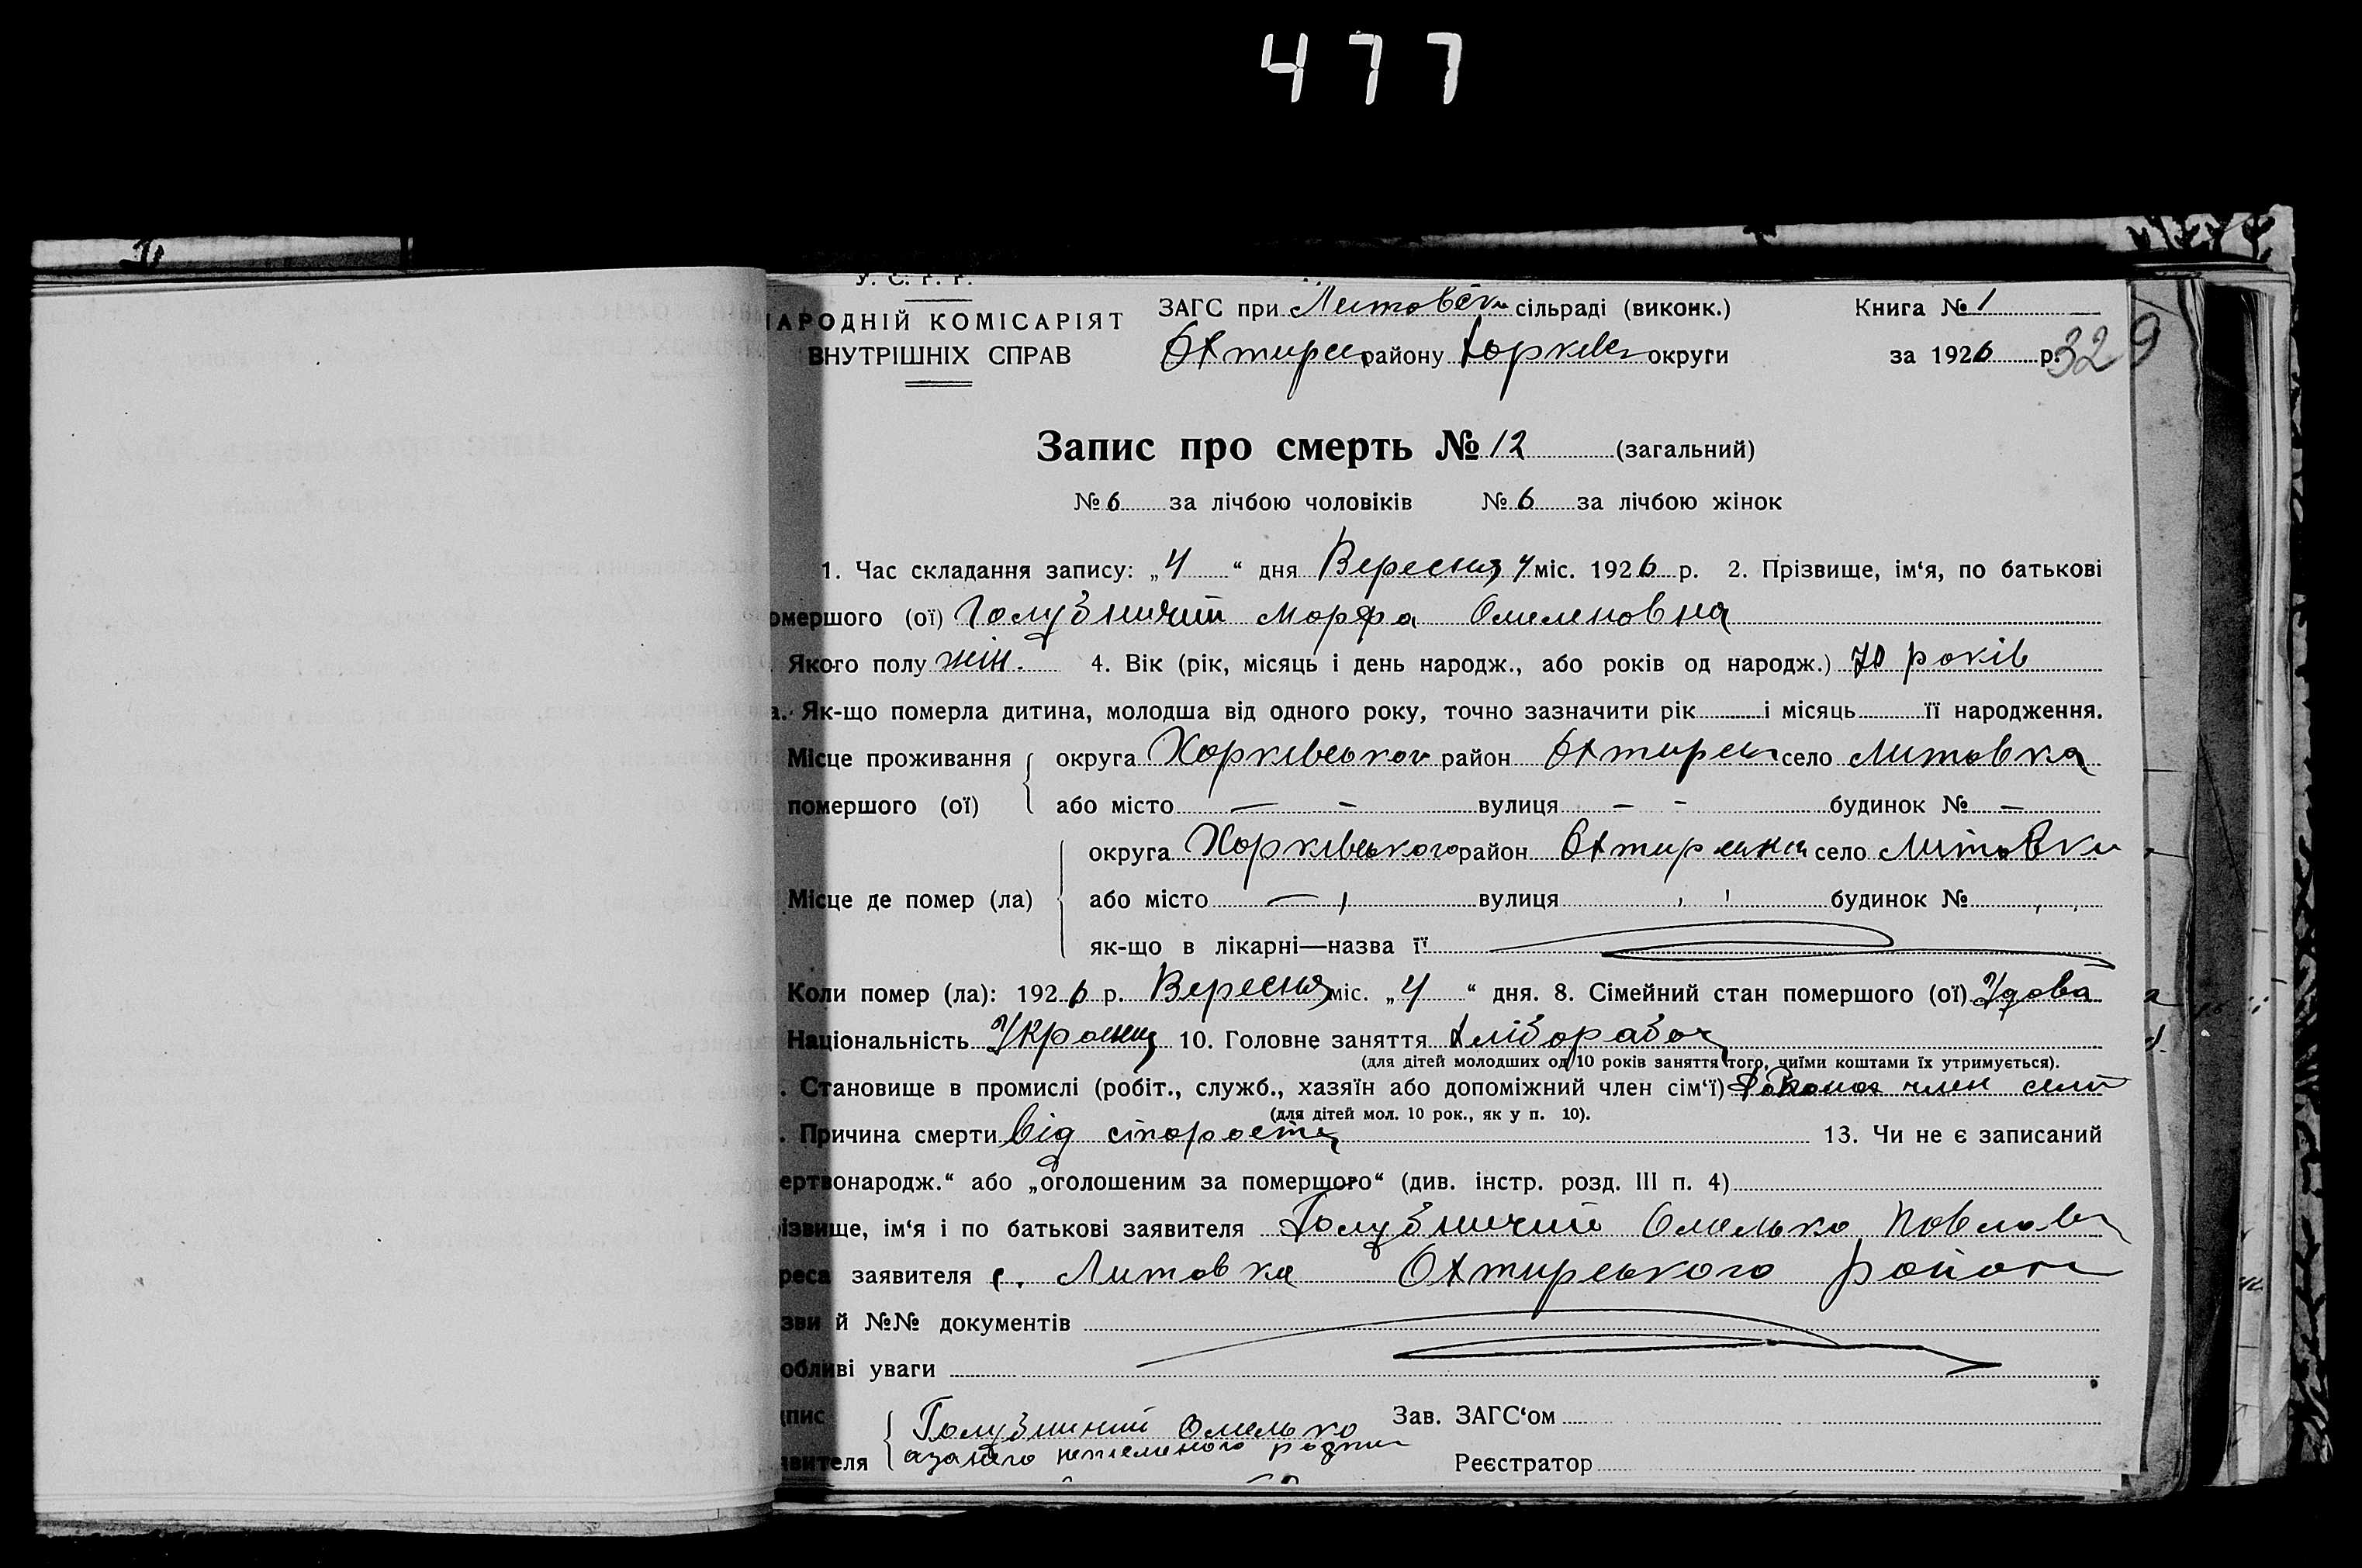 477
У. С. Р. Р.
АРОДНІЙ КОМІСАРІЯТ
ВНУТРІШНІХ СПРАВ
ЗАГС при сільраді (виконк.)
району округи
Книга № 1
за 1926 р.
329
Запис про смерть № 12 (загальний)
№ 6 за лічбою чоловіків № 6 за лічбою жінок
1. Час складання запису: „4“ дня Вересня міс. 1926 р. 2. Прізвище, ім‘я, по батькові
омершого (ої) Голубничий Морфа Омеленовна
Якого полу жін. 4. Вік (рік, місяць і день народж., або років од народж.) 70 років
а. Як-що померла дитина, молодша від одного року, точно зазначити рік і місяць її народження.
Місце проживання округа район село Литовка
помершого (ої) або місто — - вулиця - - будинок № -
округа Харківського район село Литовки
Місце де помер (ла) або місто — вулиця будинок №
як-що в лікарні—назва її
Коли помер (ла): 1926 р. Вересня міс. „4“ дня. 8. Сімейний стан помершого (ої) Удова
Національність 10. Головне заняття
(для дітей молодших од 10 років заняття того, чиїми коштами їх утримується).
. Становище в промислі (робіт., служб., хазяїн або допоміжний член сім‘ї) член
(для дітей мол. 10 рок., як у п. 10).
. Причина смерти від старости 13. Чи не є записаний
ертвонародж.“ або „оголошеним за помершого“ (див. інстр. розд. III п. 4)
ізвище, ім‘я і по батькові заявителя Голубничий Омелько
реса заявителя с. Литовка Охтирського
зви й №№ документів
обливі уваги
дпис Голубничий Омелько
Зав. ЗАГС‘ом
явителя
Реєстратор